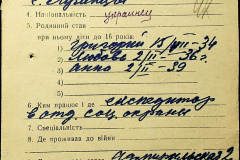 4. Національність украинец
5. Родинний стан
при ньому діти до 16 років:
1) Григорий 15/VIII-34
2) Любовь 2/II-36г.
3) Анна 2/II-39
4)
5)
6. Ким працює і де експедитор
в отд. соц. охраны
7. Спеціальність
8. Де проживав до війни